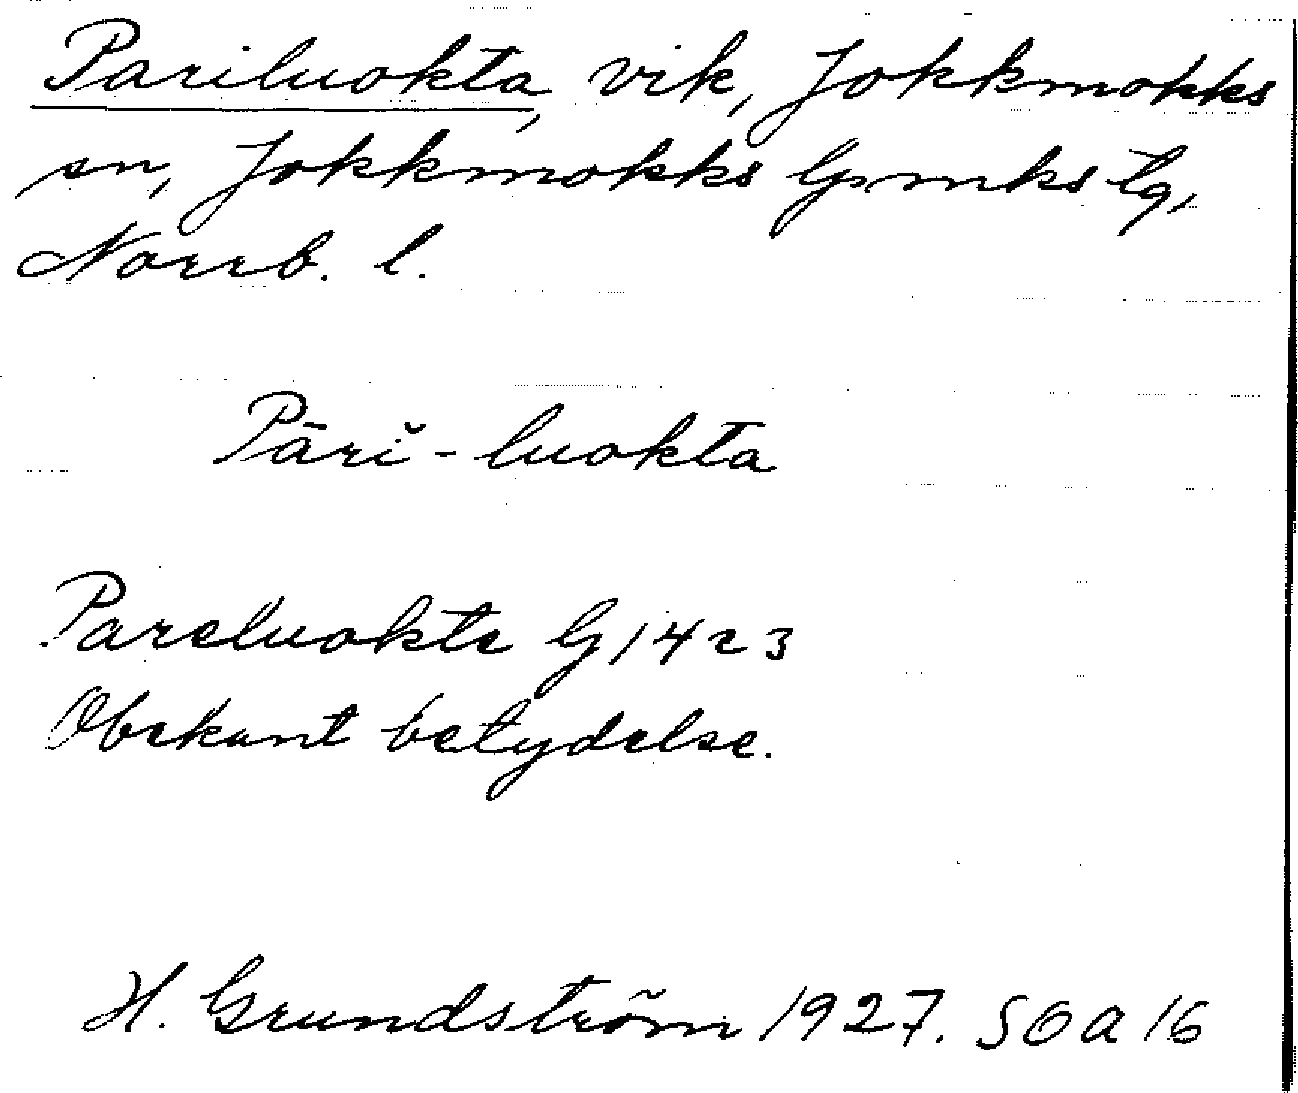 Pariluokta, vik, Jokkmokks
sn, Jokkmokks lpmks tg,
Norrb. l.
Pāriˇ-luokta
Pareluokte G 1423
Obekant betydelse.
H. Grundström 1927. SOA 16